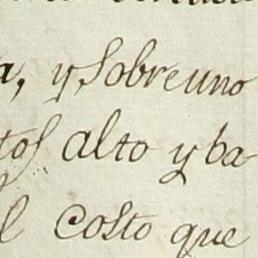 a, y sobre uno
tos alto y ba-
l costo que